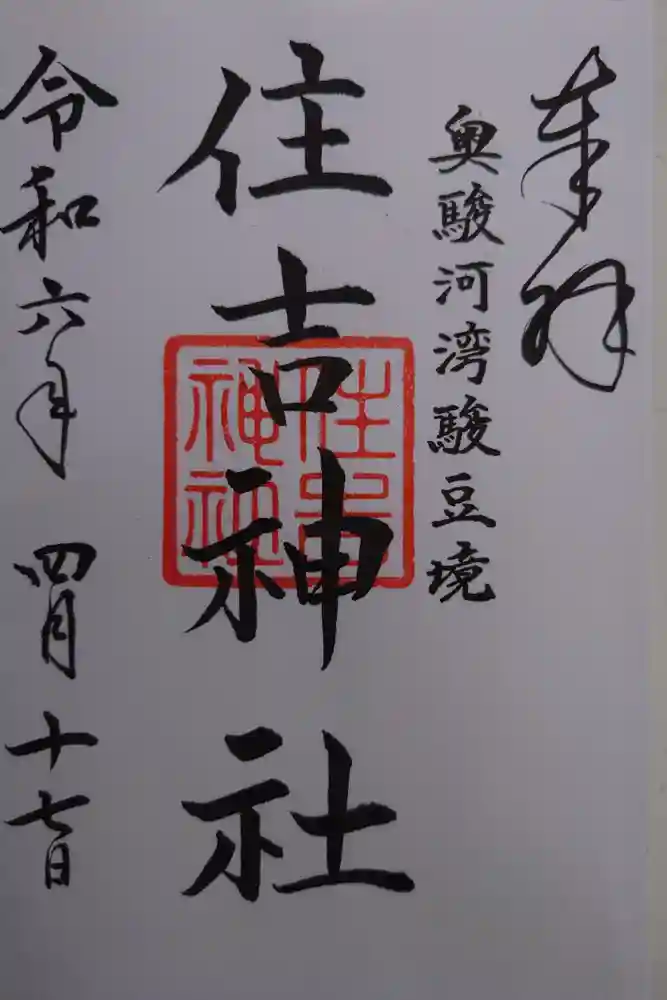 奉拝
奥駿河湾駿豆境
住吉神社
住吉神社
令和六年 四月 十七日